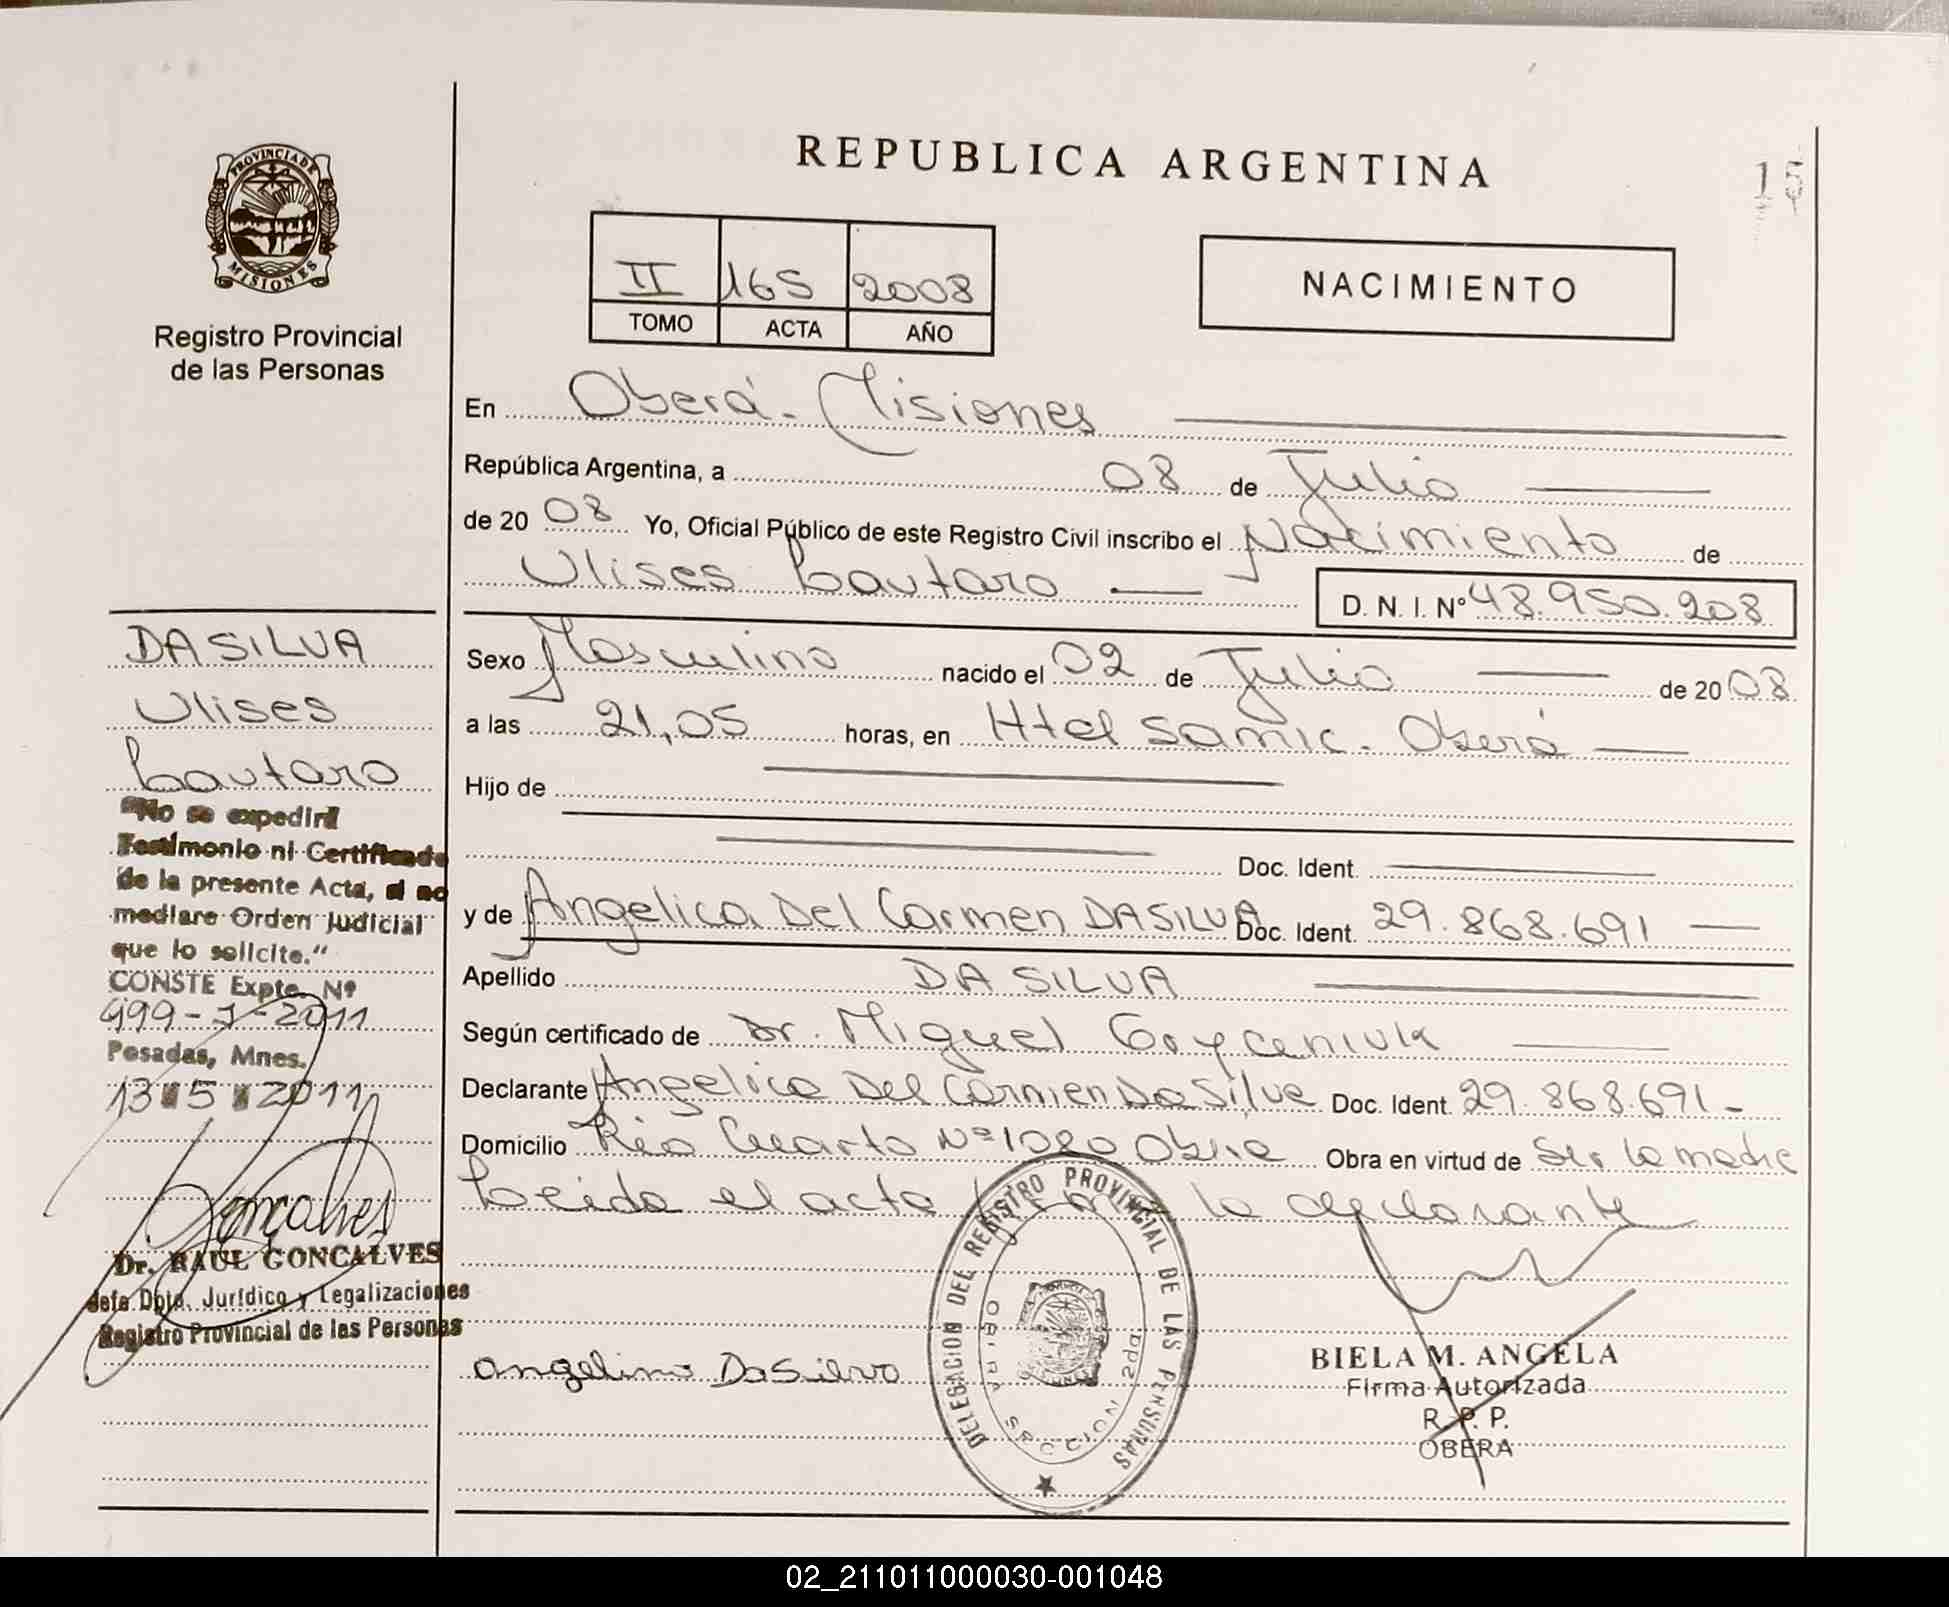 REPUBLICA ARGENTINA
15
PROVINCIA DE
MISIONES
Registro Provincial
de las Personas
II 165 2008
TOMO ACTA AÑO
NACIMIENTO
En Oberá - Misiones
República Argentina, a 08 de Julio
de 20 08 Yo, Oficial Público de este Registro Civil inscribo el Nacimiento de
Ulises Lautaro D. N. I. Nº 48.950.208
Sexo Masculino nacido el 02 de Julio de 20 08
a las 21,05 horas, en Htal Samic - Oberá
Hijo de
Doc. Ident.
y de Angelica Del Carmen DA SILVA Doc. Ident. 29.868.691
Apellido DA SILVA
Según certificado de Dr. Miguel
Declarante Angelica Del Carmen Da Silva Doc. Ident. 29.868.691 -
Domicilio Rio Cuarto Nº 1080 Obera Obra en virtud de Ser la madre
Leida el acta firma la declarante
DA SILVA
Ulises
Lautaro
"No se expedirá
Testimonio ni Certificado
de la presente Acta, si no
mediare Orden Judicial
que lo solicite."
CONSTE Expte. Nº
999-J-2011
Posadas, Mnes.
13 5 2011
Goncalves
Dr. RAUL GONCALVES
Jefe Dpto. Jurídico y Legalizaciones
Registro Provincial de las Personas
angelina DaSilva
DELEGACION DEL REGISTRO PROVINCIAL DE LAS PERSONAS
OBERA SECCION 2da
BIELA M. ANGELA
Firma Autorizada
R. P. P.
OBERA
02_211011000030-001048